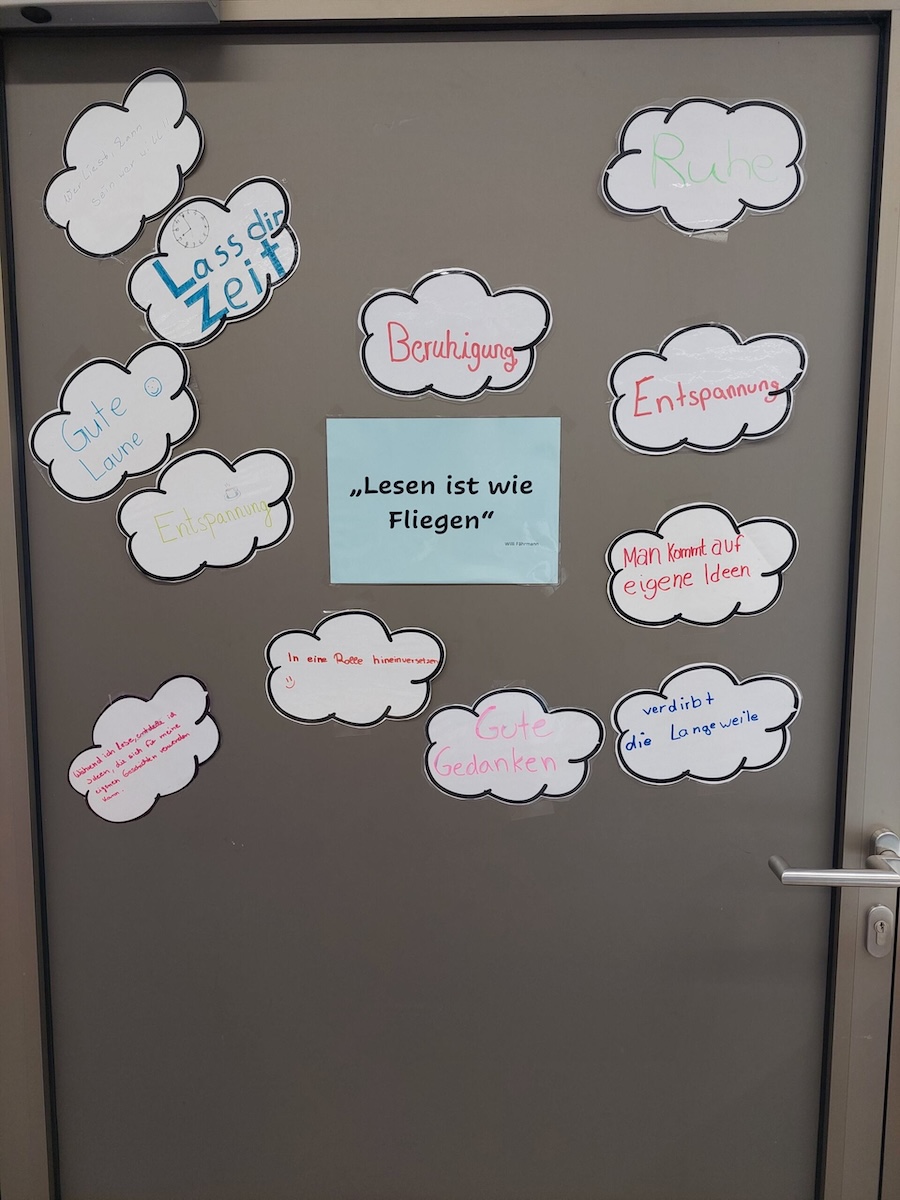 Wer liest, kann
sein wer er will!
Lass dir
Zeit
Ruhe
Beruhigung
Entspannung
Gute
Laune
Entspannung
„Lesen ist wie
Fliegen“
Willi Fährmann
Man kommt auf
eigene Ideen
In eine Rolle hineinversetzen
Gute
Gedanken
verdirbt
die Langeweile
Während ich lese, entdecke ich
Ideen, die ich für meine
eigenen Geschichten verwenden
kann.